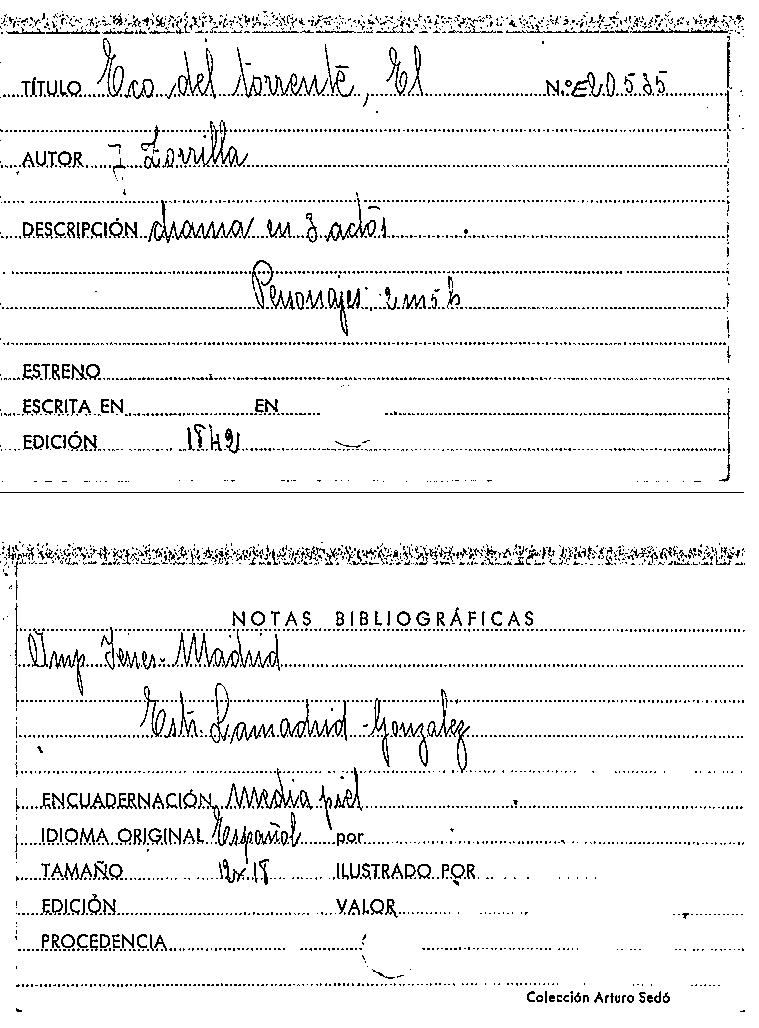 TÍTULO Eco del torrente, El N.º E20535
AUTOR J Zorrilla
DESCRIPCIÓN drama en 3 actos
Personajes: 2 m 5 h
ESTRENO
ESCRITA EN EN
EDICIÓN 1842
NOTAS BIBLIOGRÁFICAS
Imp Yenes - Madrid
Estr. Lamadrid - Gonzalez
ENCUADERNACIÓN Media piel
IDIOMA ORIGINAL Español por
TAMAÑO 12x18 ILUSTRADO POR
EDICIÓN VALOR
PROCEDENCIA
Colección Arturo Sedó